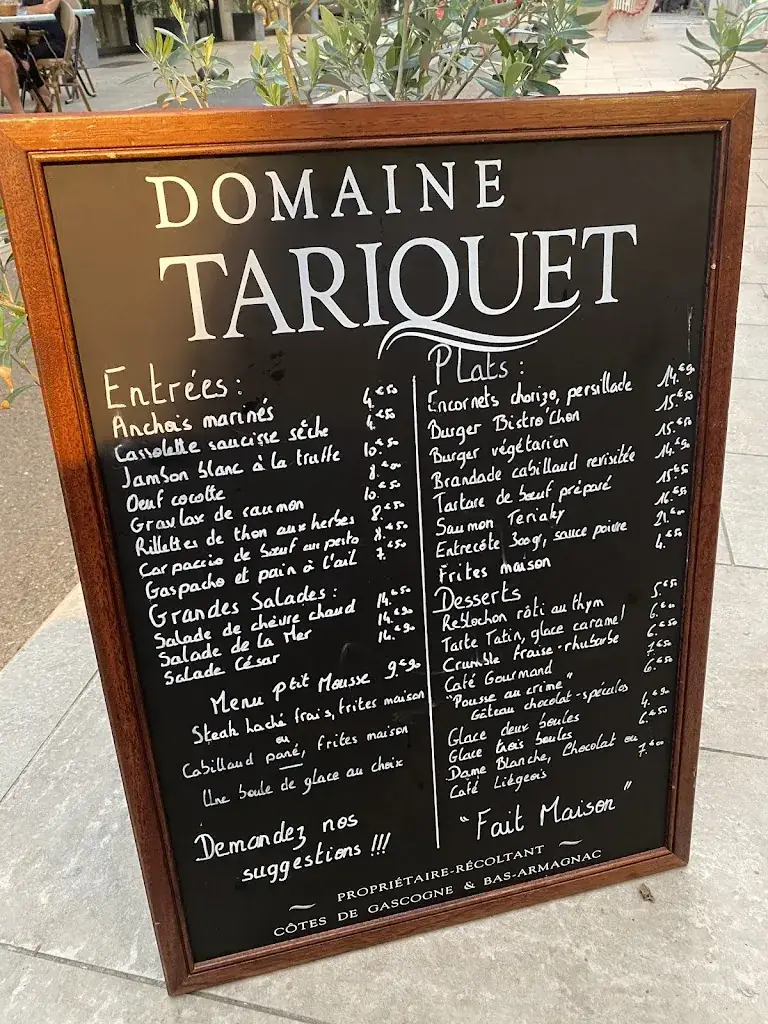 DOMAINE
TARIQUET
Entrées :
Anchois marinés 4.€50
Cassolette saucisse sèche 4.€50
Jambon blanc à la truffe 10.€50
Oeuf cocotte 8.€00
Gravlax de saumon 10.€50
Rillettes de thon aux herbes 8.€50
Carpaccio de bœuf au pesto 8.€50
Gaspacho et pain à l'ail 7.€50
Grandes Salades :
Salade de chèvre chaud 14.€50
Salade de la Mer 14.€90
Salade César 14.€90
Menu p'tit Mousse 9.€90
Steak haché frais, frites maison
ou
Cabillaud pané, frites maison
Une boule de glace au choix
Demandez nos
suggestions !!!
Plats :
Encornets chorizo, persillade 14.€90
Burger Bistro'Chon 15.€50
Burger végétarien 15.€50
Brandade cabillaud revisitée 14.€90
Tartare de bœuf préparé 15.€50
Saumon Teriaky 16.€50
Entrecôte 300g, sauce poivre 21.€00
Frites maison 4.€50
Desserts
Reblochon rôti au thym 5.€50
Tarte Tatin, glace caramel 6.€00
Crumble fraise-rhubarbe 6.€50
Café Gourmand 7.€50
"Pousse au crime"
Gâteau chocolat-spéculos 6.€50
Glace deux boules 4.€90
Glace trois boules 6.€50
Dame Blanche, Chocolat ou
Café Liégeois 7.€00
"Fait Maison"
PROPRIÉTAIRE-RÉCOLTANT
CÔTES DE GASCOGNE & BAS-ARMAGNAC